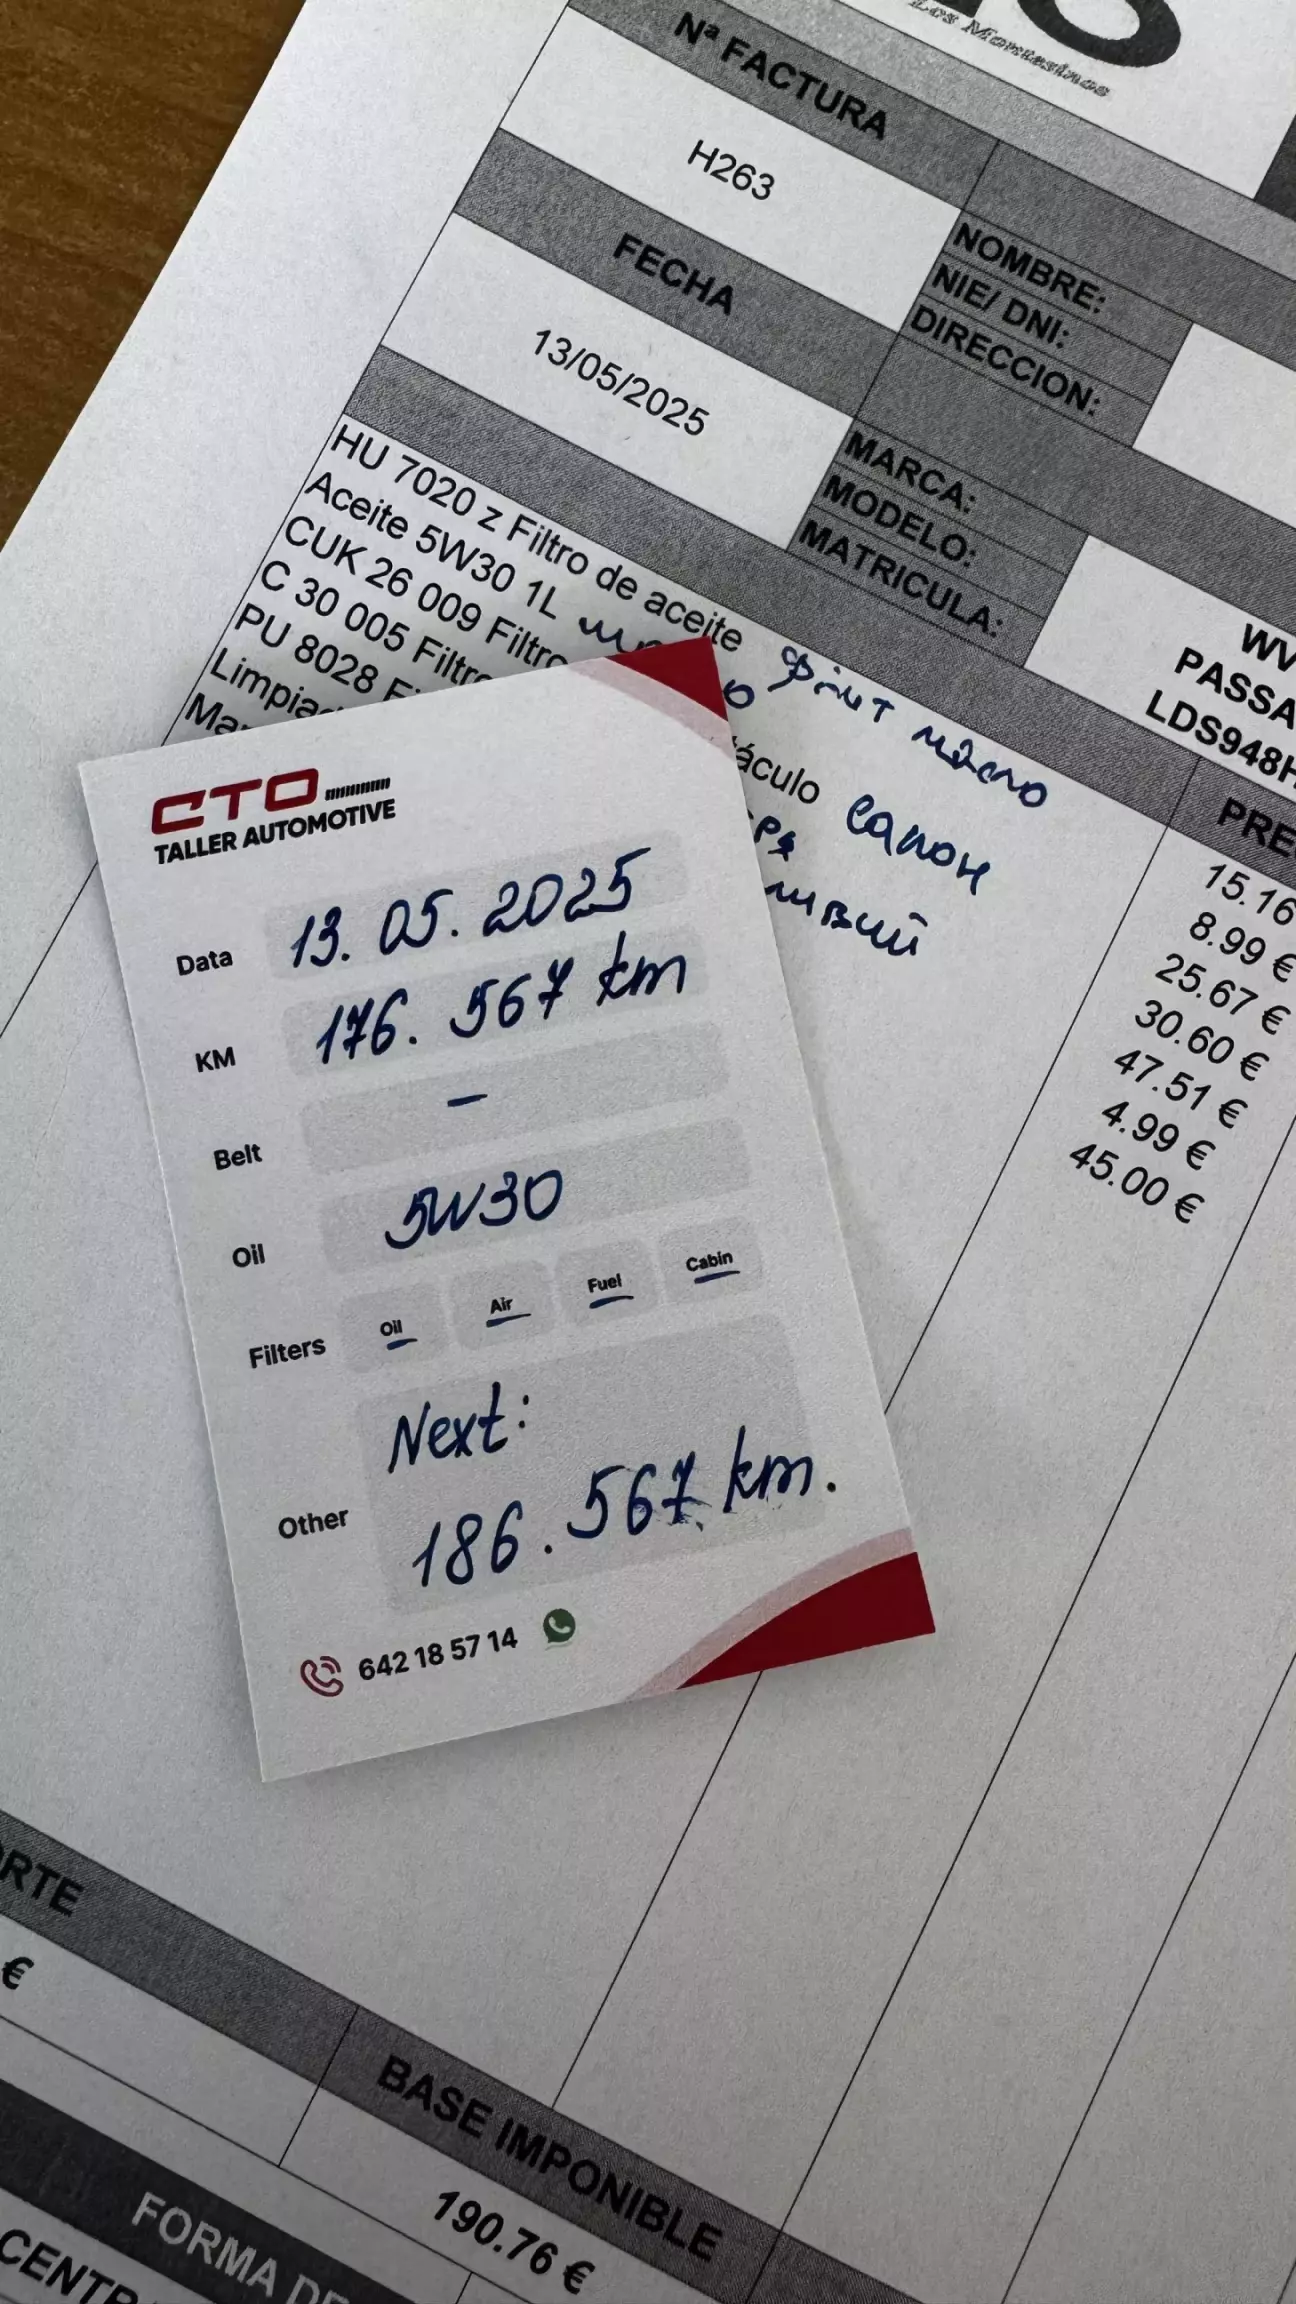 Los Montesinos
Nª FACTURA
H263
NOMBRE:
NIE/ DNI:
DIRECCION:
FECHA
13/05/2025
MARCA:
MODELO:
MATRICULA:
PASSA
LDS948H
HU 7020 z Filtro de aceite фільт масло
Aceite 5W30 1L
CUK 26 009 Filtro
C 30 005 Filtro
PU 8028
салон
PRE
15.16
8.99 €
25.67 €
30.60 €
47.51 €
4.99 €
45.00 €
CTO
TALLER AUTOMOTIVE
Data 13.05.2025
KM 176.567 km
Belt –
Oil 5W30
Filters Oil Air Fuel Cabin
Other Next:
186.567 km.
642 18 57 14
€
BASE IMPONIBLE
190.76 €
FORMA DE